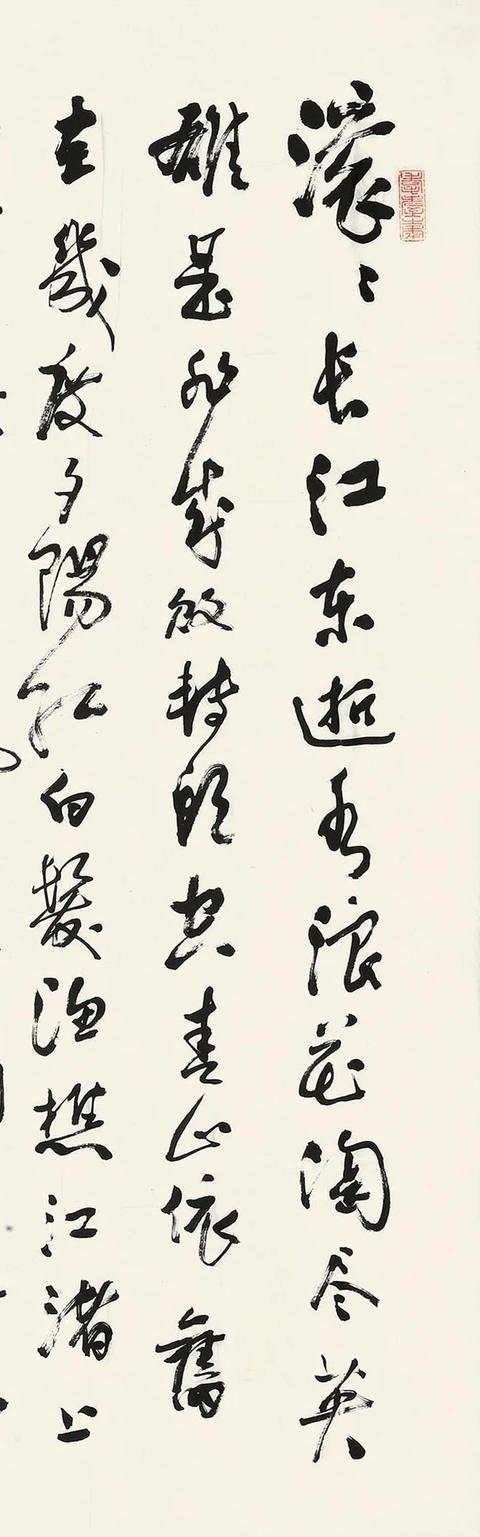 滚〻长江东逝水浪花淘尽英
雄是非成敗轉头空青山依舊
在幾度夕陽红白髮渔樵江渚上